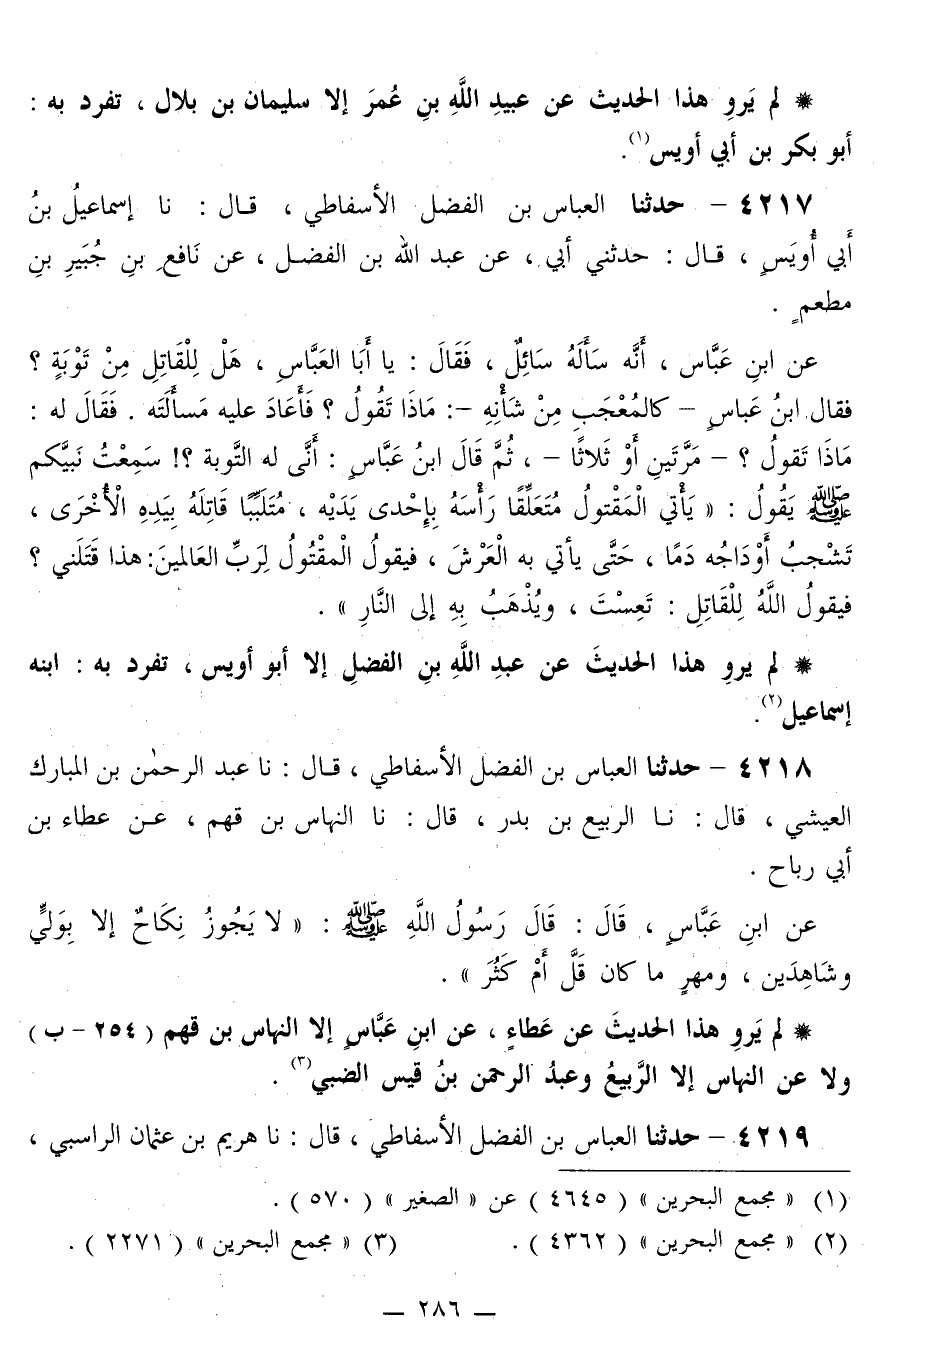 * لم يَروِ هذا الحديث عن عبيدِ اللَّهِ بنِ عُمرَ إلا سليمان بن بلال ، تفرد به :
أبو بكر بن أبي أويس(١).
٤٢١٧ – حدثنا العباس بن الفضل الأسفاطي ، قال : نا إسماعيلُ بنُ
أَبي أُويَسٍ ، قال : حدثني أبي ، عن عبد الله بن الفضل ، عن نَافعِ بنِ جُبَيرِ بنِ
مطعمٍ .
عن ابنِ عَبَّاس ، أَنَّه سَأَلَهُ سَائِلٌ ، فَقَالَ : يا أَبَا العَبَّاسِ ، هَلْ لِلْقَاتِلِ مِنْ تَوْبَةٍ ؟
فقال ابنُ عَباسٍ – كالمُعْجَبِ مِنْ شَأْنِهِ –: مَاذَا تَقُولُ ؟ فَأَعَادَ عليه مَسأَلَتَه . فَقَالَ له :
مَاذَا تَقولُ ؟ – مَرَّتَينِ أَوْ ثَلاثًا – ، ثُمَّ قَالَ ابنُ عَبَّاسٍ : أَنَّى له التَّوبة ؟! سَمِعْتُ نَبيَّكم
ﷺ يَقُولُ : « يَأتي الْمَقْتولُ مُتَعَلِّقًا رَأسَهُ بِإِحْدى يَدَيْه ، مُتَلَبِّبًا قَاتِلَهُ بِيَدِهِ الْأُخْرَى ،
تَشْجبُ أوْدَاجُه دَمًا ، حَتَّى يأتي به الْعَرْشَ ، فيقولُ الْمقْتُولُ لِرَبِّ العَالمينَ: هذا قَتَلَني ؟
فيقولُ اللَّهُ لِلْقَاتِلِ : تَعِسْتَ ، ويُذْهَبُ بِهِ إلى النَّارِ » .
* لم يروِ هذا الحديثَ عن عبدِ اللَّهِ بنِ الفضلِ إلا أبو أويس ، تفرد به : ابنه
إسماعيل(٢).
٤٢١٨ – حدثنا العباس بن الفضل الأسفاطي ، قال : نا عبد الرحمٰن بن المبارك
العيشي ، قال : نا الربيع بن بدر ، قال : نا النهاس بن قهم ، عن عطاء بن
أبي رباح .
عن ابنِ عَبَّاسٍ ، قَالَ : قَالَ رَسُولُ اللَّهِ ﷺ : « لا يَجُوزُ نِكَاحٌ إلا بِوَليٍّ
وشَاهِدَين ، ومهرٍ ما كان قَلَّ أَمْ كَثُرَ » .
* لم يَروِ هذا الحديثَ عن عَطاءٍ ، عن ابنِ عَبَّاسٍ إلا النهاس بن قهم ( ٢٥٤ – ب )
ولا عن النهاس إلا الرَّبيعُ وعبدُ الرحمن بنُ قيس الضبي(٣) .
٤٢١٩ – حدثنا العباس بن الفضل الأسفاطي ، قال : نا هريم بن عثمان الراسبي ،
(١) « مجمع البحرين » ( ٤٦٤٥ ) عن « الصغير » ( ٥٧٠ ) .
(٢) « مجمع البحرين » ( ٤٣٦٢ ) . (٣) « مجمع البحرين » ( ٢٢٧١ ) .
— ٢٨٦ —